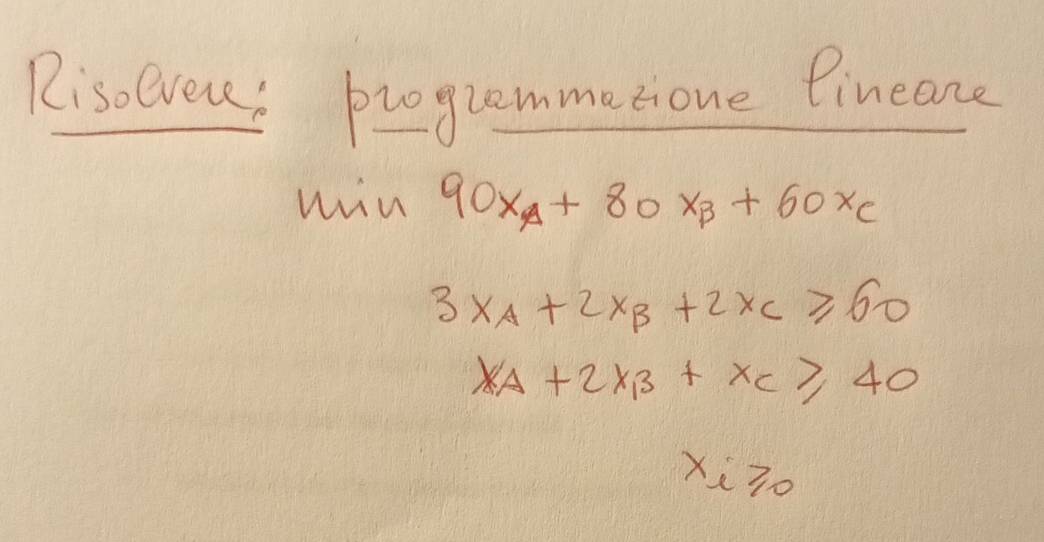 Risolvere: programmazione lineare
min 90xA + 80xB + 60xC
3xA + 2xB + 2xC ≥ 60
xA + 2xB + xC ≥ 40
xi ≥ 0